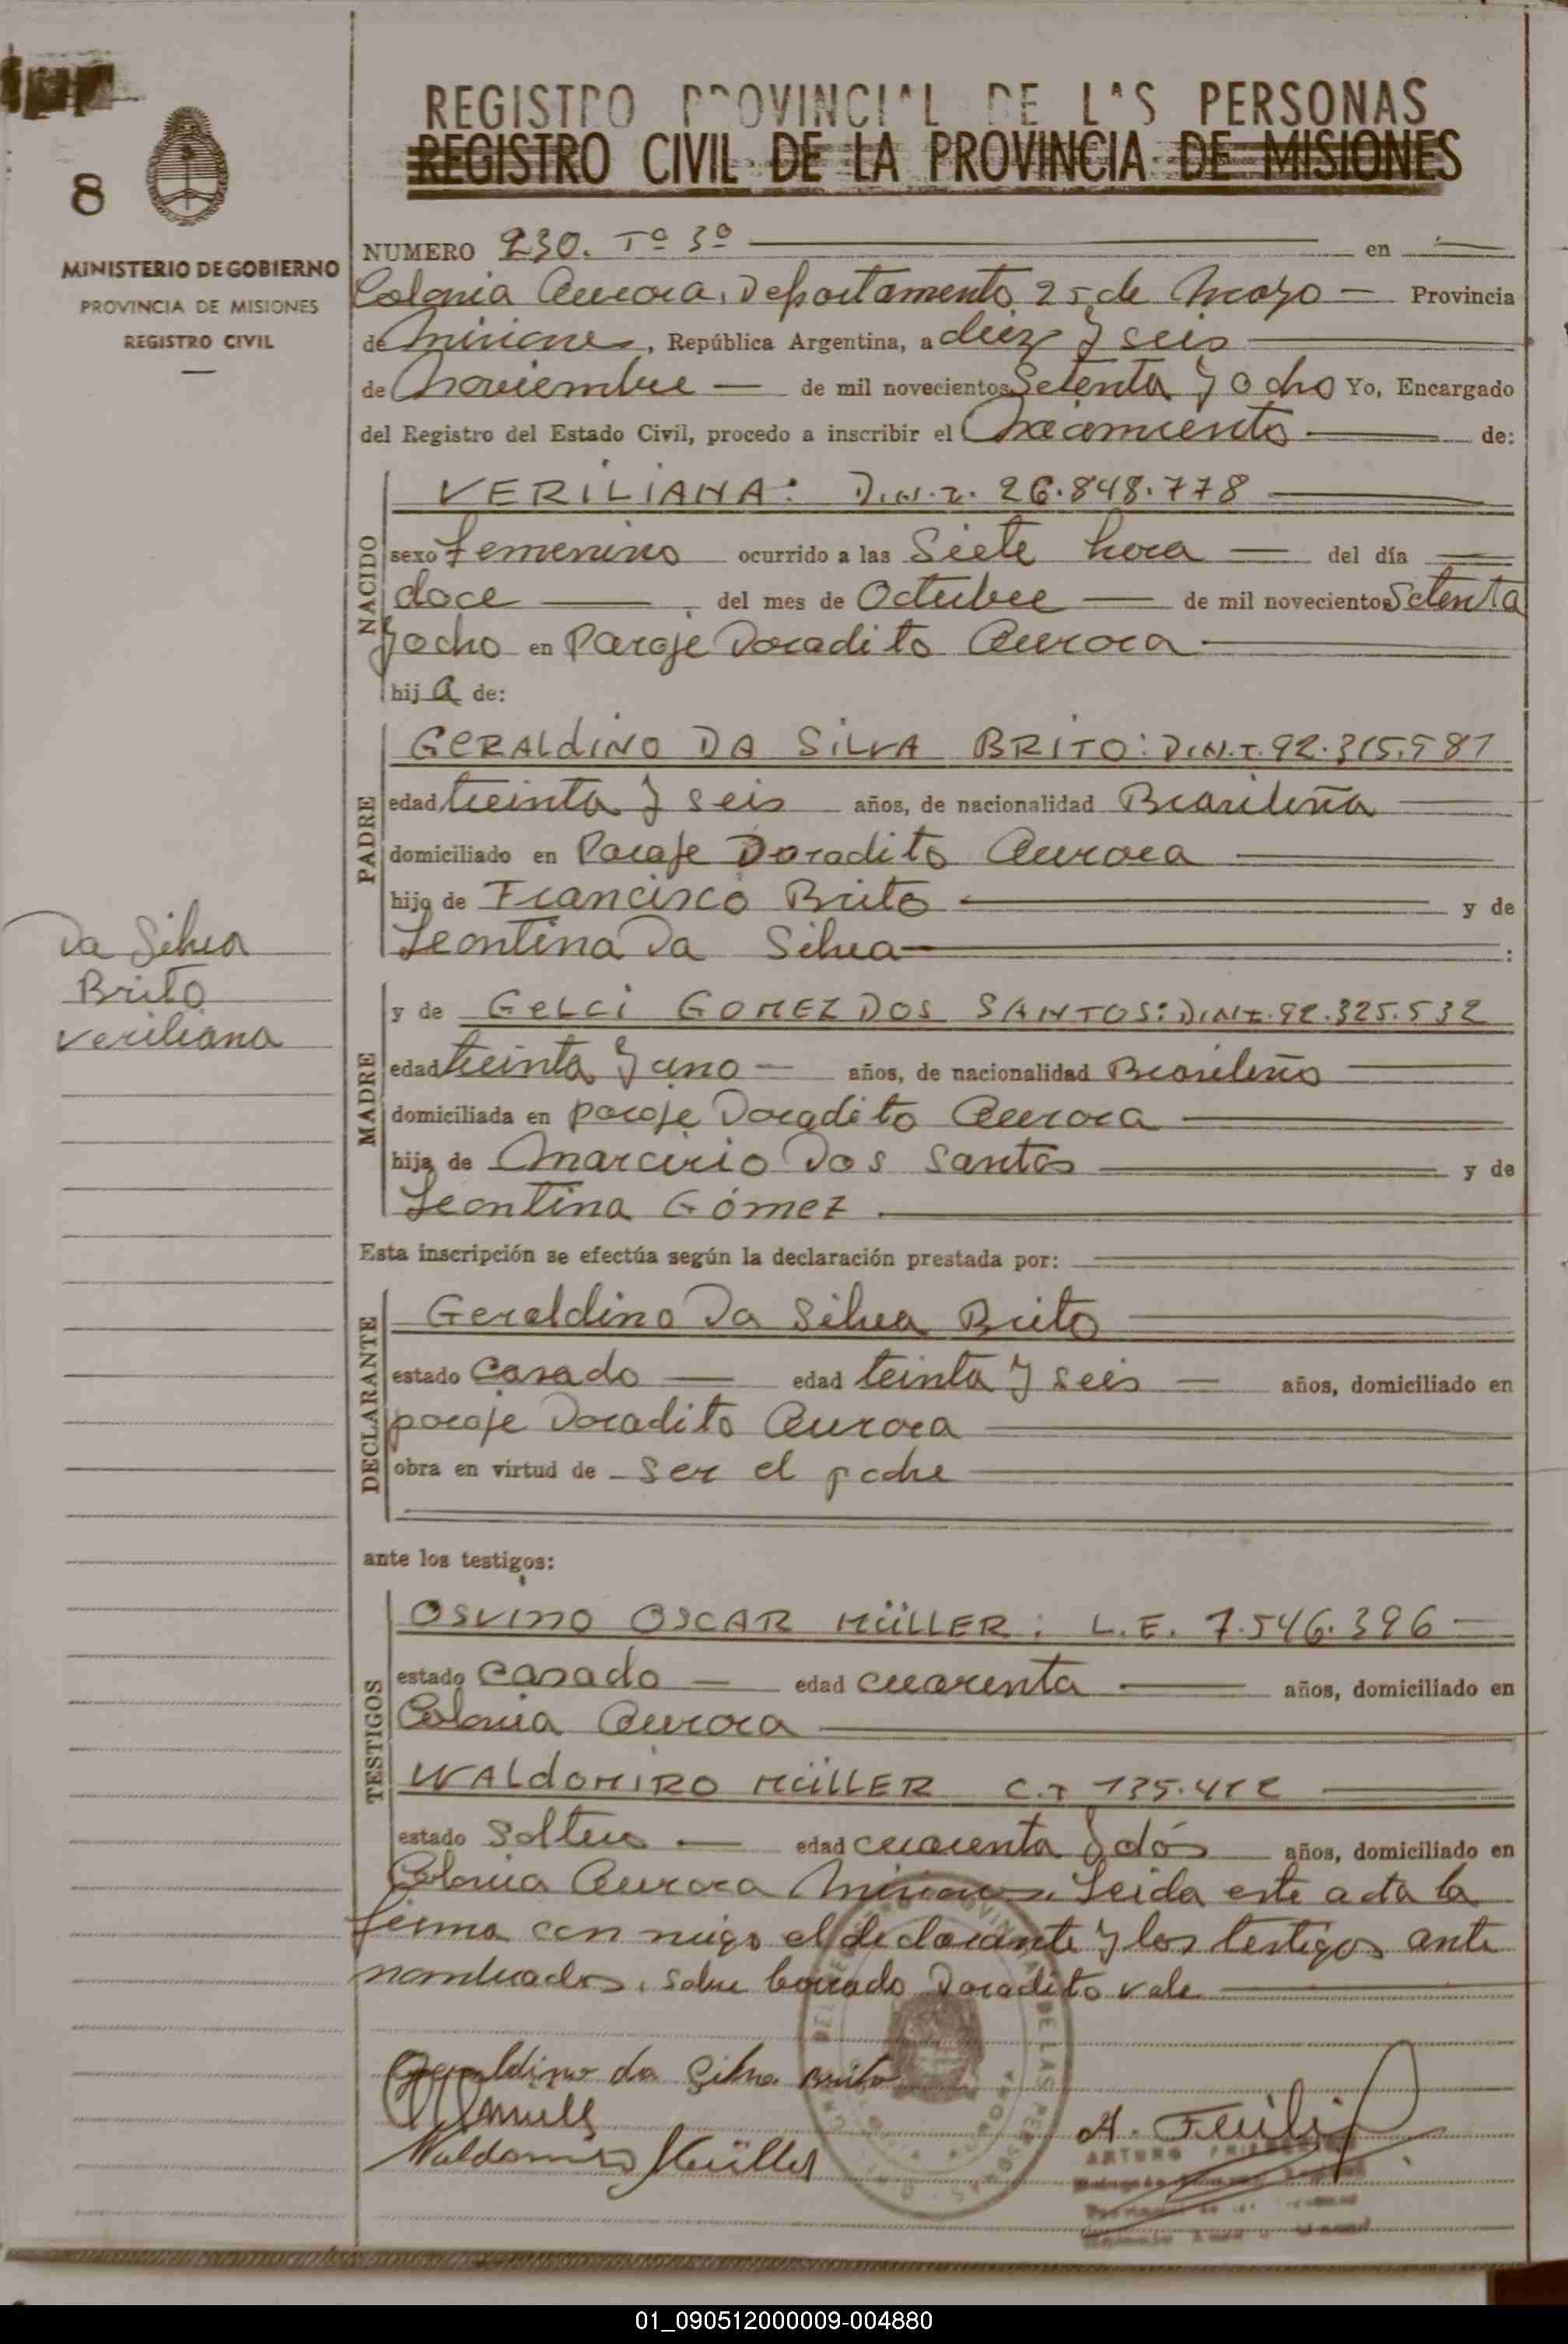 8
MINISTERIO DE GOBIERNO
PROVINCIA DE MISIONES
REGISTRO CIVIL
Da Silva
Brito
Veriliana
REGISTRO PROVINCIAL DE LAS PERSONAS
REGISTRO CIVIL DE LA PROVINCIA DE MISIONES
NUMERO 230. Tº 3º en
Colonia Aurora, Departamento 25 de Mayo Provincia
de Misiones, República Argentina, a diez y seis
de Noviembre de mil novecientos Setenta y ocho Yo, Encargado
del Registro del Estado Civil, procedo a inscribir el Nacimiento de:
NACIDO
VERILIANA: D.N.I. 26.848.778
sexo femenino ocurrido a las Siete hora del día
doce del mes de Octubre de mil novecientos Setenta
y ocho en Paraje Doradito Aurora
hija de:
PADRE
GERALDINO DA SILVA BRITO: D.N.I. 92.315.581
edad treinta y seis años, de nacionalidad Brasileña
domiciliado en Paraje Doradito Aurora
hijo de Francisco Brito y de
Leontina Da Silva :
MADRE
y de GELCI GOMEZ DOS SANTOS: D.N.I. 92.325.532
edad treinta y uno años, de nacionalidad Brasileño
domiciliada en paraje Doradito Aurora
hija de Marcirio Dos Santos y de
Leontina Gómez
Esta inscripción se efectúa según la declaración prestada por:
DECLARANTE
Geraldino Da Silva Brito
estado Casado edad teinta y seis años, domiciliado en
paraje Doradito Aurora
obra en virtud de ser el padre
ante los testigos:
TESTIGOS
OSVINO OSCAR MÜLLER: L.E. 7.546.396
estado Casado edad cuarenta años, domiciliado en
Colonia Aurora
WALDOMIRO MÜLLER C.I 135.412
estado Soltero edad cuarenta y dós años, domiciliado en
Colonia Aurora Misiones. Leida este acta la
firma con migo el declarante y los testigos ante
nombrados, sobre borrado Doradito vale
Geraldino da Silva Brito
Waldomiro Müller
ARTURO
01_090512000009-004880